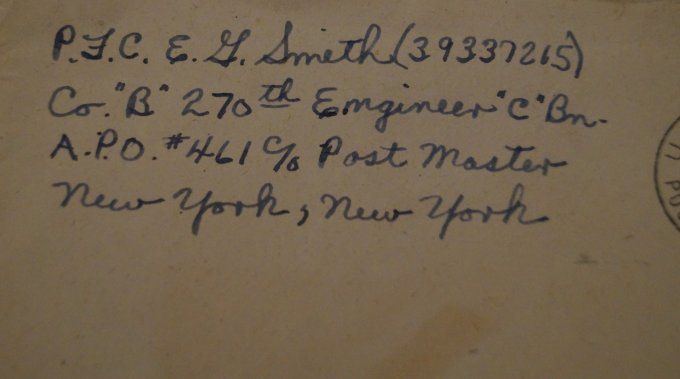 P.F.C. E. G. Smith (39337215)
Co. "B" 270th Engineer "C" Bn.
A.P.O. #461 c/o Post Master
New York, New York